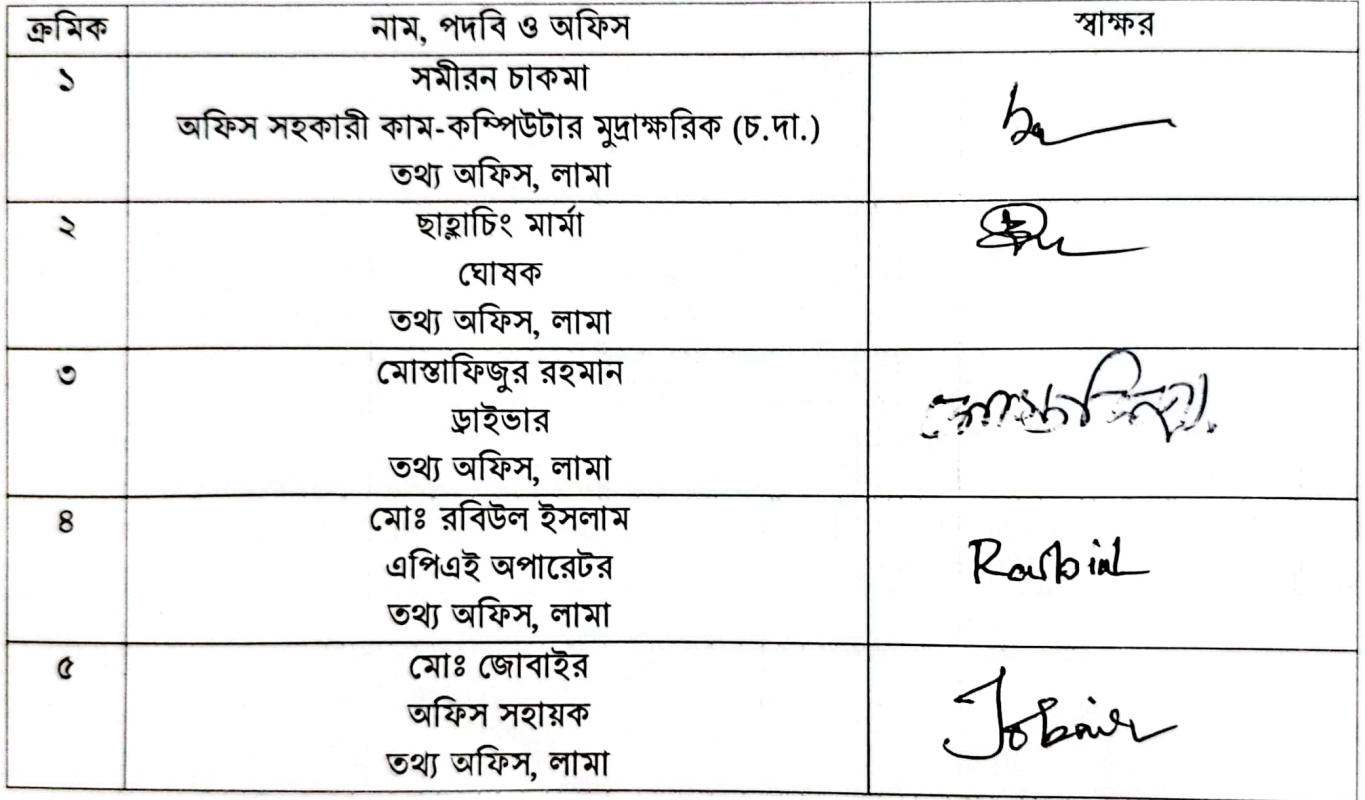 ক্রমিক নাম, পদবি ও অফিস স্বাক্ষর
১ সমীরন চাকমা
অফিস সহকারী কাম-কম্পিউটার মুদ্রাক্ষরিক (চ.দা.)
তথ্য অফিস, লামা
২ ছাহ্লাচিং মার্মা
ঘোষক
তথ্য অফিস, লামা
৩ মোস্তাফিজুর রহমান
ড্রাইভার
তথ্য অফিস, লামা
৪ মোঃ রবিউল ইসলাম
এপিএই অপারেটর
তথ্য অফিস, লামা
৫ মোঃ জোবাইর
অফিস সহায়ক
তথ্য অফিস, লামা
Jobair